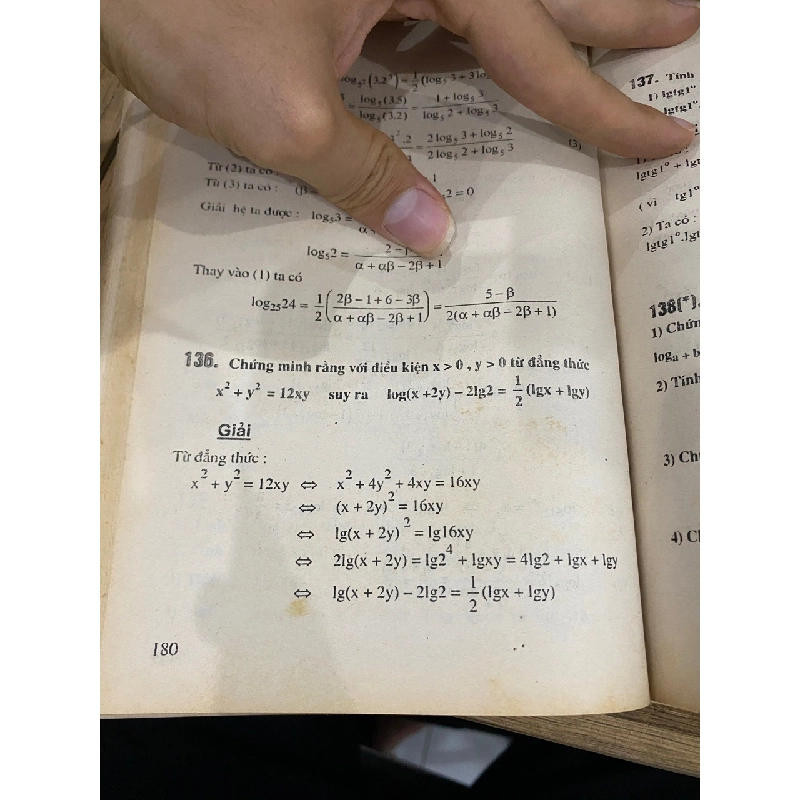 log₅² (3.2³) = 1/2 (log₅ 3 + 3log
= log₅(3.5) / log₅(3.2) = 1 + log₅ 3 / log₅ 2 + log₅ 3
².2 = 2 log₅ 3 + log₅ 2 / 2 log₅ 2 + log₅ 3 (3)
Từ (2) ta có
Từ (3) ta có : 2 = 0
Giải hệ ta được : log₅3 =
log₅2 = 2 – / α + αβ – 2β + 1
Thay vào (1) ta có
log₂₅24 = 1/2 (2β – 1 + 6 – 3β / α + αβ – 2β + 1) = 5 – β / 2(α + αβ – 2β + 1)
136. Chứng minh rằng với điều kiện x > 0 , y > 0 từ đẳng thức
x² + y² = 12xy suy ra log(x +2y) – 2lg2 = 1/2 (lgx + lgy)
Giải
Từ đẳng thức :
x² + y² = 12xy ⇔ x² + 4y² + 4xy = 16xy
⇔ (x + 2y)² = 16xy
⇔ lg(x + 2y)² = lg16xy
⇔ 2lg(x + 2y) = lg2⁴ + lgxy = 4lg2 + lgx + lgy
⇔ lg(x + 2y) – 2lg2 = 1/2 (lgx + lgy)
180
137. Tính
1) lgtg1°
lgtg1°
lgtg1° + lg
( vì tg1°
2) Ta có :
lgtg1°.lgt
138(*).
1) Chứn
logₐ + b
2) Tính
3) Ch
4) C